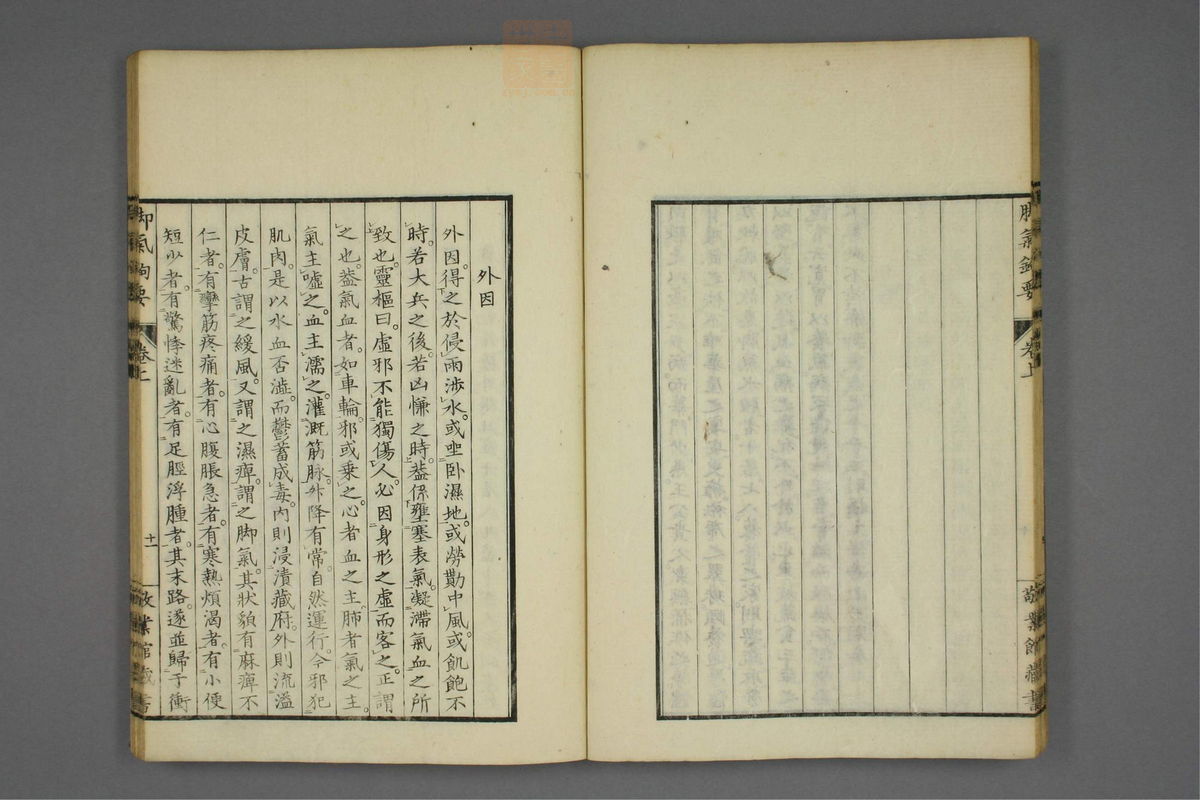 脚氣鉤要
卷上
敬業館藏書
外因
外因。得之於侵雨渉水。或坐卧濕地。或勞勩中風。或飢飽不
時。若大兵之後。若凶慊之時。葢係壅塞表氣。凝滯氣血之所
致也。靈樞曰。虛邪不能獨傷人。必因身形之虛。而客之。正謂
之也。葢氣血者。如車輪。邪或乗之。心者血之主。肺者氣之主。
氣主噓之。血主濡之。灌漑筋脉。升降有常。自然運行。令邪犯
肌肉。是以水血否澁。而鬱蓄成毒。内則浸漬藏府。外則流溢
皮膚。古謂之緩風。又謂之濕痺。謂之脚氣。其狀貌有麻痺不
仁者。有攣筋疼痛者。有心腹脹急者。有寒熱煩渴者。有小便
短少者。有驚悸迷亂者。有足脛浮腫者。其末路。遂並歸于衝
脚氣鉤要
卷上
十一
敬業館藏書